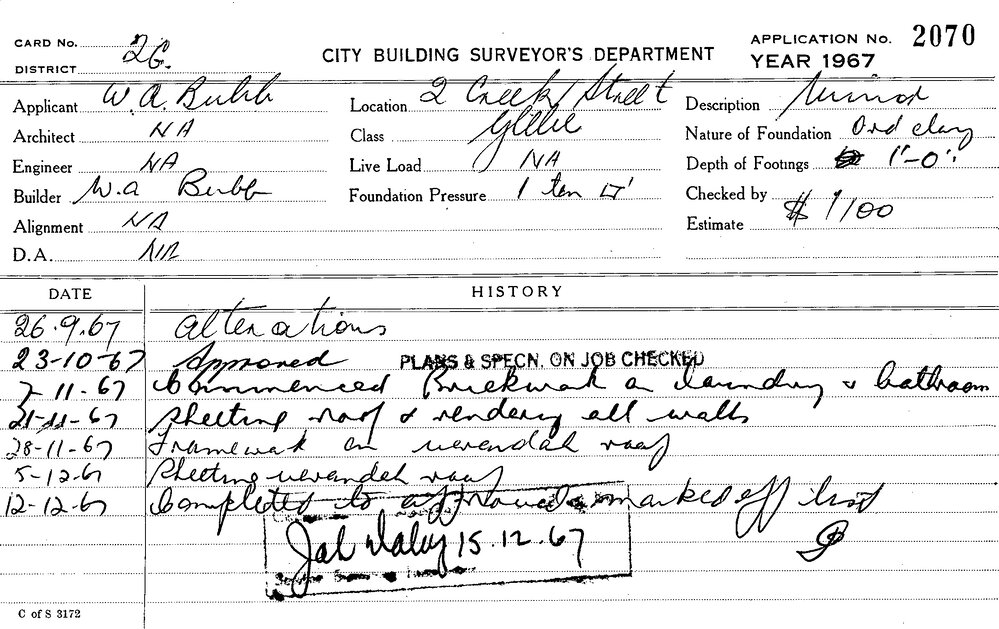 CARD No. 26.
CITY BUILDING SURVEYOR'S DEPARTMENT
APPLICATION No. 2070
DISTRICT
YEAR 1967
Applicant W.A. Bubb Location 2 Creek Street Description Minor
Architect NA Class Glebe Nature of Foundation Ord clay
Engineer NA Live Load NA Depth of Footings 1'-0".
Builder W.A Bubb Foundation Pressure 1 ton □' Checked by
Alignment NA Estimate $ 1100
D.A. NA
DATE HISTORY
26.9.67 Alterations
23-10-67 Approved PLANS & SPECN. ON JOB CHECKED
7-11-67 Commenced Brickwork on laundry & bathroom
21-11-67 Sheeting roof & rendering all walls
28-11-67 Framework on verandah roof
5-12-67 Sheeting verandah roof
12-12-67 Completed to approved & marked off list
15.12.67
C of S 3172